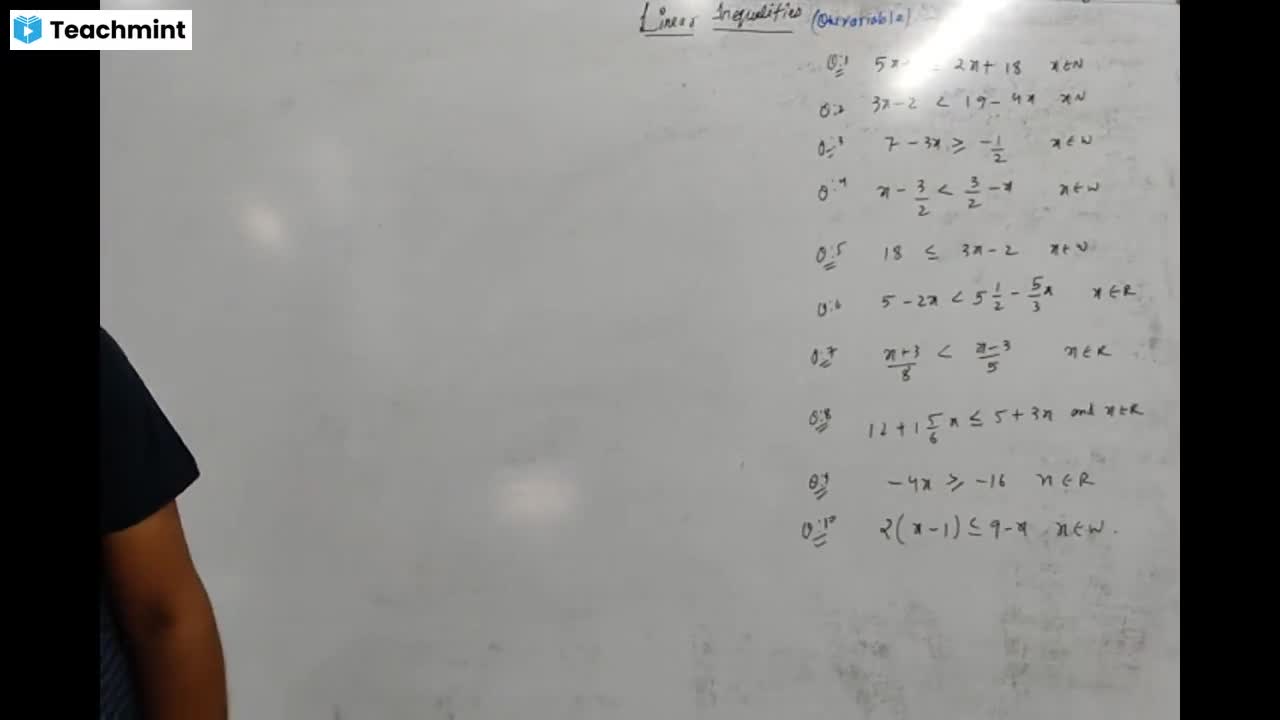 Teachmint
Linear Inequalities (One variable)
Q:1 5x 2x + 18 x ∈ N
Q:2 3x - 2 < 19 - 4x x N
Q:3 7 - 3x ≥ -1/2 x ∈ W
Q:4 x - 3/2 < 3/2 - x x ∈ W
Q:5 18 ≤ 3x - 2 x ∈
Q:6 5 - 2x < 5 1/2 - 5/3 x x ∈ R
Q:7 x+3/8 < x-3/5 x ∈ R
Q:8 12 + 1 5/6 x ≤ 5 + 3x and x ∈ R
Q:9 -4x ≥ -16 x ∈ R
Q:10 2(x - 1) ≤ 9 - x x ∈ W.